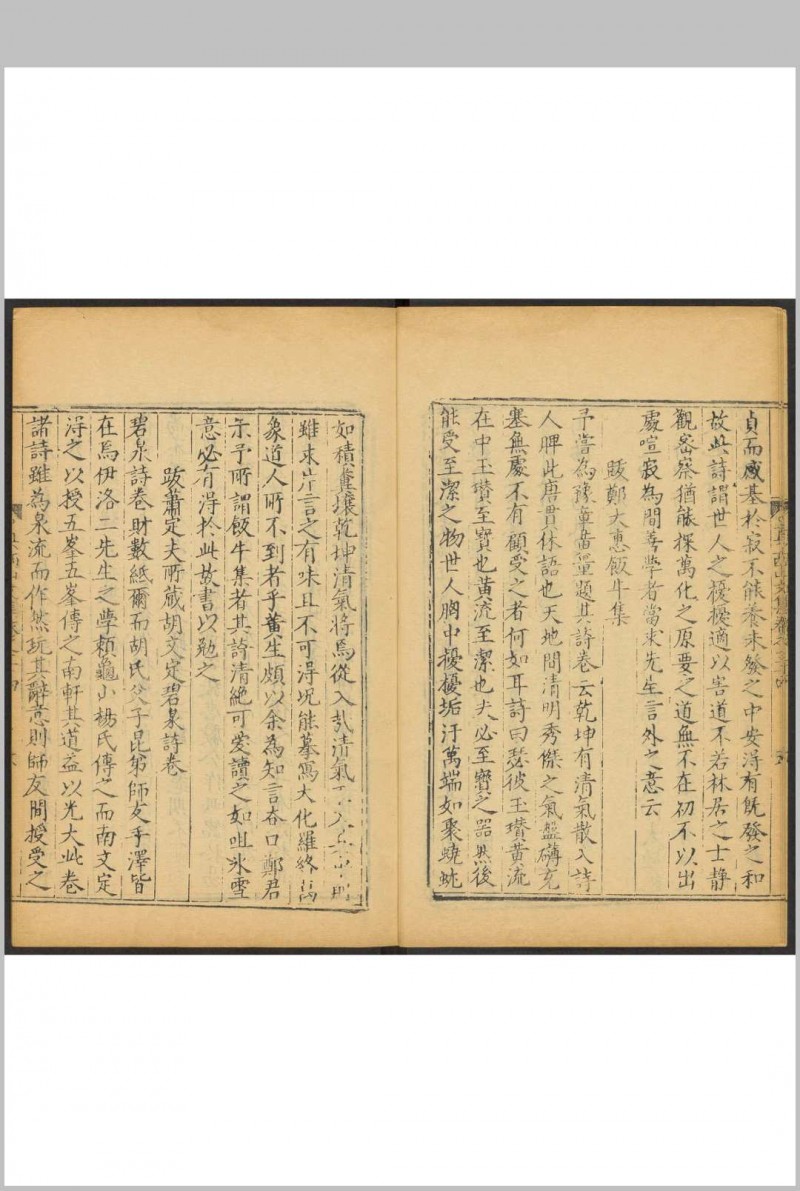 貞而感基於寂不能養未發之中安淂有旣發之和
故此詩謂世人之擾擾適以害道不若林居之士静
觀密察猶能探萬化之原要之道無不在初不以出
處喧寂為間善學者當求先生言外之意云
跋鄭大惠飯牛集
予嘗為豫章黄量題其詩卷云乾坤有清氣散入詩
人脾此唐貫休語也天地間清明秀傑之氣盤礴充
塞無處不有顧受之者何如耳詩曰瑟彼玉瓚黄流
在中玉瓚至寳也黄流至潔也夫必至寳之器然後
能受至潔之物世人胸中擾擾垢汙萬端如聚蟯蚘
如積糞壤乾坤清氣將焉從入㢤清氣
雖来
言之有味且不可淂况能摹寫大化羅終萬
象道人所不到者乎黄生頗以余為知言吞口鄭君
示予所謂飯牛集者其詩清絶可爱讀之如咀氷雪
意必有淂於此故書以勉之
跋蕭定夫所蔵胡文定碧泉詩卷
碧泉詩卷財數紙爾而胡氏父子昆弟師友手澤皆
在焉伊洛二先生之學頼龜山楊氏傳之而南文定
淂之以授五峯五峯傳之南軒其道益以光大此卷
諸詩雖為泉流而作然玩其辭意則師友間授受之